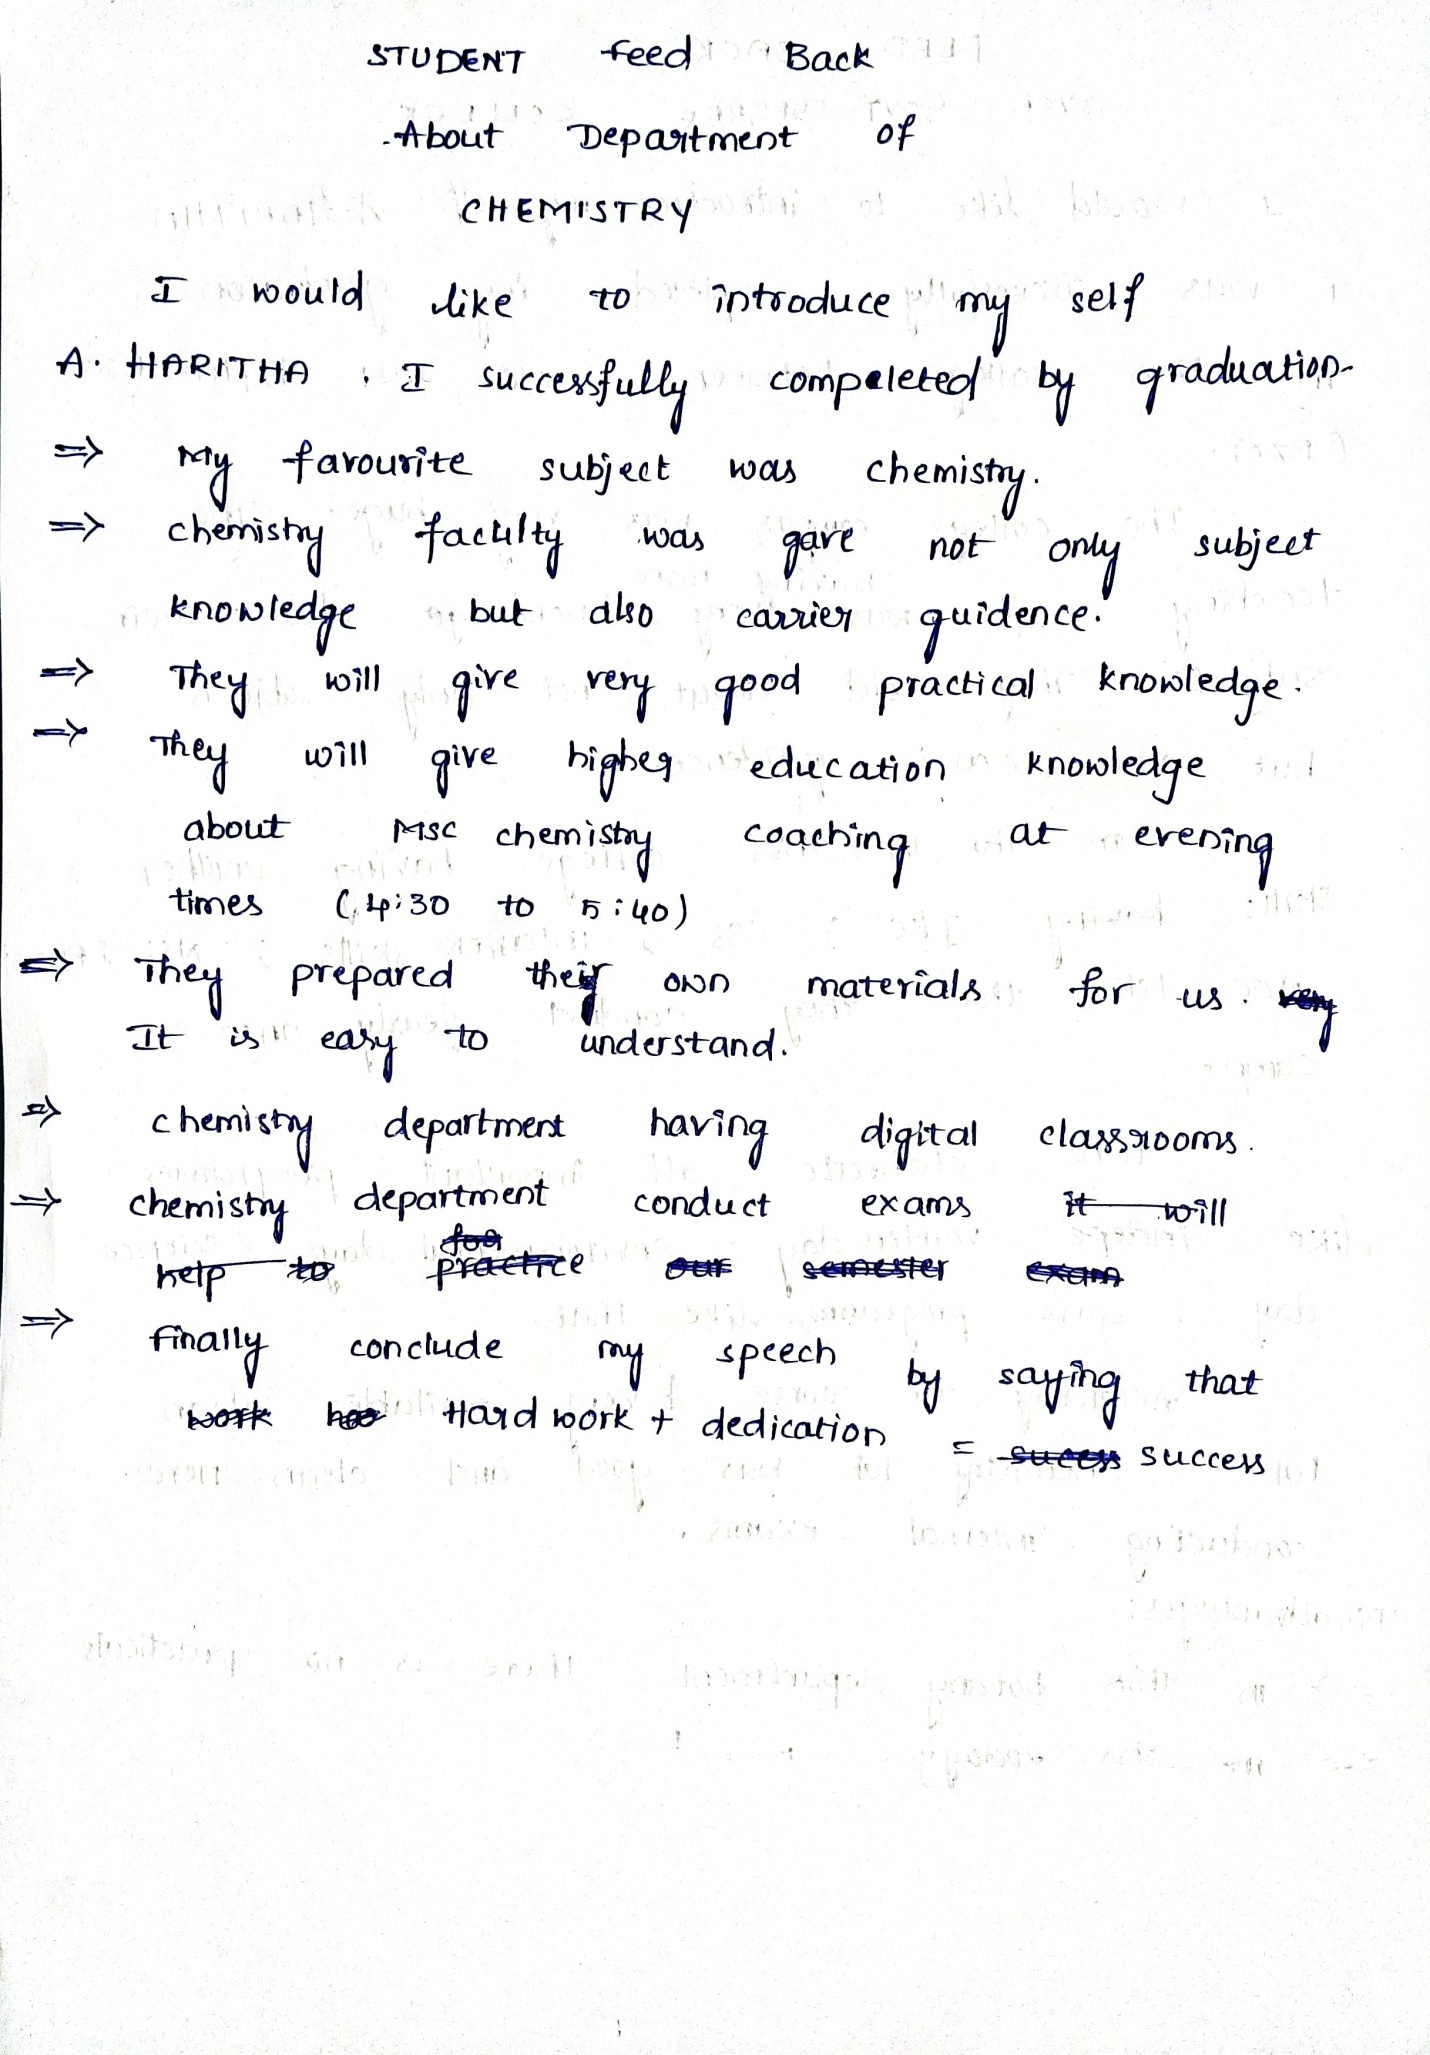 STUDENT Feed Back
About Department of
CHEMISTRY
I would like to introduce my self
A. HARITHA . I successfully compeleted by graduation.
⇒ My favourite subject was chemistry.
⇒ chemistry faculty was gave not only subject
knowledge but also carrier guidence.
⇒ They will give very good practical knowledge.
⇒ They will give higher education knowledge
about MSC chemistry coaching at evening
times (4:30 to 5:40)
⇒ They prepared their own materials for us. very
It is easy to understand.
⇒ chemistry department having digital classrooms.
⇒ chemistry department conduct exams it will
for
help to practice our semester exam
⇒ finally conclude my speech by saying that
work Hard work + dedication = sucess success